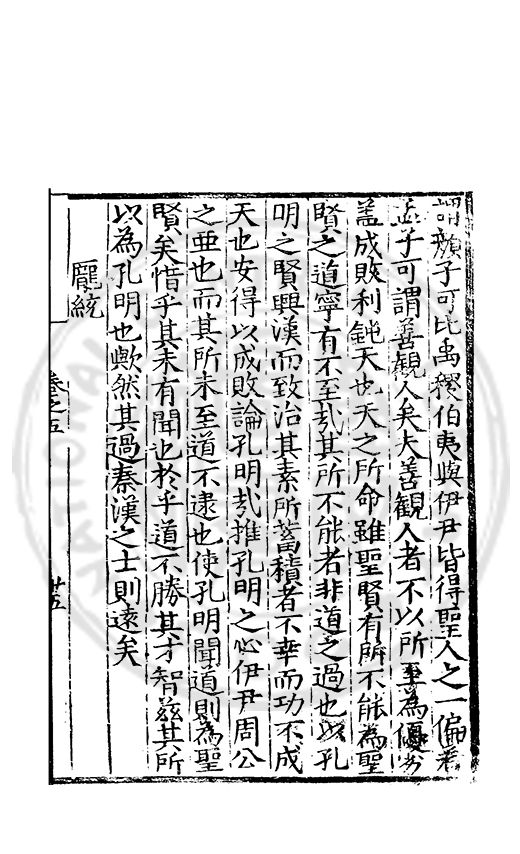 謂顏子可比禹稷伯夷與伊尹皆得聖人之一偏者
孟子可謂善觀人矣夫善觀人者不以所至為優劣
盖成敗利鈍天也天之所命雖聖賢有所不能為聖
賢之道寧有不至㢤其所不能者非道之過也以孔
明之賢興漢而致治其素所蓄積者不幸而功不成
天也安得以成敗論孔明㢤推孔明之心伊尹周公
之亜也而其所未至道不逮也使孔明聞道則為聖
賢矣惜乎其未有聞也於乎道不勝其才智兹其所
以為孔明也歟然其過秦漢之士則遠矣
龐統
卷之五
廿五
NATIONAL